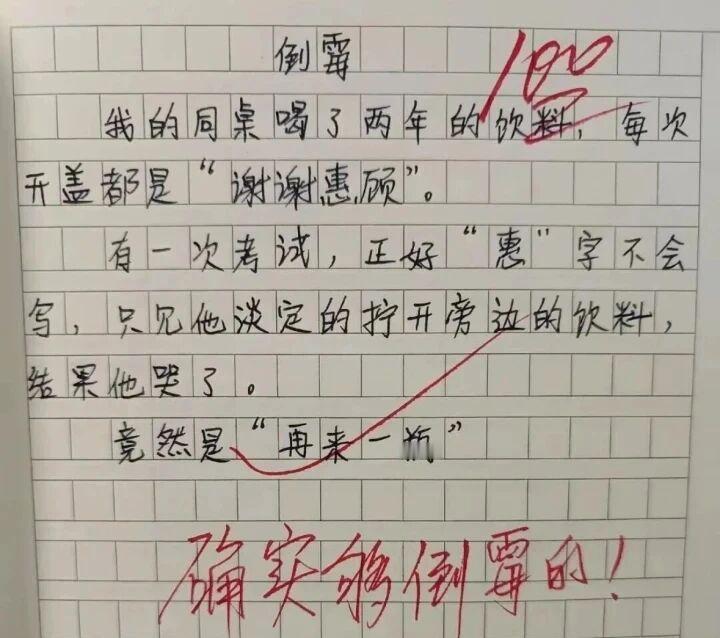 倒霉
100
我的同桌喝了两年的饮料，每次
开盖都是“谢谢惠顾”。
有一次考试，正好“惠”字不会
写，只见他淡定的拧开旁边的饮料，
结果他哭了。
竟然是“再来一瓶”
确实够倒霉的！